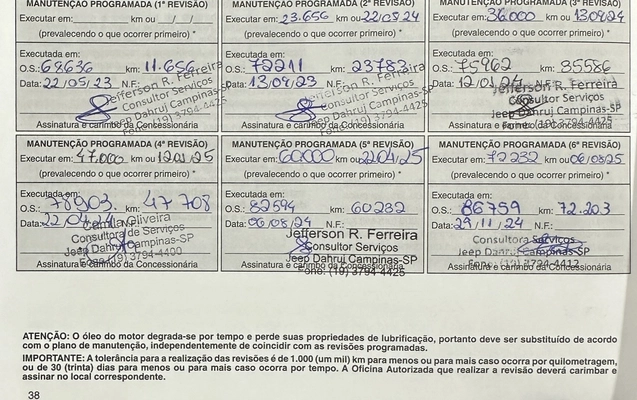 MANUTENÇÃO PROGRAMADA (1ª REVISÃO)
Executar em: km ou __/__/__
(prevalecendo o que ocorrer primeiro) *
Executada em:
O.S.: 68636 km: 11.656
Data: 22/05/23 N.F.:
Jefferson R. Ferreira
Consultor Serviços
Jeep Dahruj Campinas-SP
Fone: (19) 3794-4425
Assinatura e carimbo da Concessionária
MANUTENÇÃO PROGRAMADA (2ª REVISÃO)
Executar em: 23.656 km ou 22/05/24
(prevalecendo o que ocorrer primeiro) *
Executada em:
O.S.: 72211 km: 23783
Data: 13/09/23 N.F.:
Jefferson R. Ferreira
Consultor Serviços
Jeep Dahruj Campinas-SP
Fone: (19) 3794-4425
Assinatura e carimbo da Concessionária
MANUTENÇÃO PROGRAMADA (3ª REVISÃO)
Executar em: 36000 km ou 13/09/24
(prevalecendo o que ocorrer primeiro) *
Executada em:
O.S.: 75962 km: 35586
Data: 12/01/24 N.F.:
Jefferson R. Ferreira
Consultor Serviços
Jeep Dahruj Campinas-SP
Fone: (19) 3794-4425
Assinatura e carimbo da Concessionária
MANUTENÇÃO PROGRAMADA (4ª REVISÃO)
Executar em: 47.000 km ou 12/01/25
(prevalecendo o que ocorrer primeiro) *
Executada em:
O.S.: 78903. km: 47 708
Data: 22/04/24 N.F.:
Oliveira
Consultora de Serviços
Jeep Dahruj Campinas-SP
Fone: (19) 3794-4400
Assinatura e carimbo da Concessionária
MANUTENÇÃO PROGRAMADA (5ª REVISÃO)
Executar em: 60000 km ou 22/04/25
(prevalecendo o que ocorrer primeiro) *
Executada em:
O.S.: 82594 km: 60232
Data: 06/08/24 N.F.:
Jefferson R. Ferreira
Consultor Serviços
Jeep Dahruj Campinas-SP
Fone: (19) 3794-4425
Assinatura e carimbo da Concessionária
MANUTENÇÃO PROGRAMADA (6ª REVISÃO)
Executar em: 72232 km ou 06/08/25
(prevalecendo o que ocorrer primeiro) *
Executada em:
O.S.: 86759 km: 72.203
Data: 29/11/24 N.F.:
Consultora Serviços
Jeep Dahruj Campinas-SP
Fone: (19) 3794-4412
Assinatura e carimbo da Concessionária
ATENÇÃO: O óleo do motor degrada-se por tempo e perde suas propriedades de lubrificação, portanto deve ser substituído de acordo
com o plano de manutenção, independentemente de coincidir com as revisões programadas.
IMPORTANTE: A tolerância para a realização das revisões é de 1.000 (um mil) km para menos ou para mais caso ocorra por quilometragem,
ou de 30 (trinta) dias para menos ou para mais caso ocorra por tempo. A Oficina Autorizada que realizar a revisão deverá carimbar e
assinar no local correspondente.
38